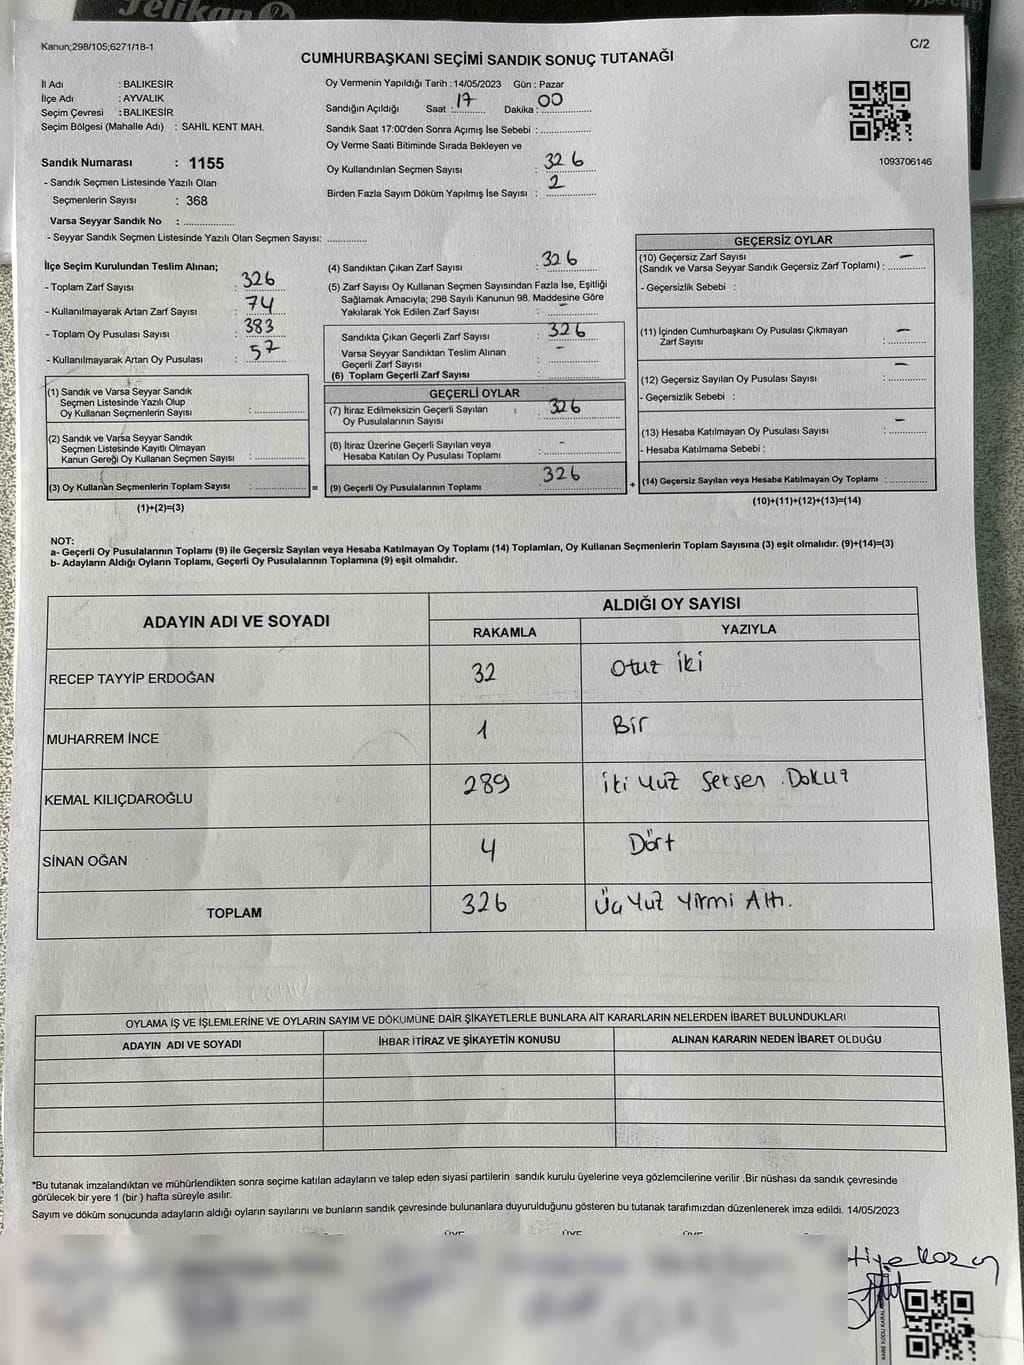 Pelikan
Kanun;298/105;6271/18-1
C/2
CUMHURBAŞKANI SEÇİMİ SANDIK SONUÇ TUTANAĞI
İl Adı : BALIKESİR
İlçe Adı : AYVALIK
Seçim Çevresi : BALIKESİR
Seçim Bölgesi (Mahalle Adı) : SAHİL KENT MAH.
Sandık Numarası : 1155
- Sandık Seçmen Listesinde Yazılı Olan
Seçmenlerin Sayısı : 368
Varsa Seyyar Sandık No : ..............
- Seyyar Sandık Seçmen Listesinde Yazılı Olan Seçmen Sayısı: ............
Oy Vermenin Yapıldığı Tarih : 14/05/2023 Gün : Pazar
Sandığın Açıldığı Saat : 17 Dakika : 00
Sandık Saat 17:00'den Sonra Açımış İse Sebebi : ..............
Oy Verme Saati Bitiminde Sırada Bekleyen ve
Oy Kullandırılan Seçmen Sayısı : 326
Birden Fazla Sayım Döküm Yapılmış İse Sayısı : 2
1093706146
İlçe Seçim Kurulundan Teslim Alınan;
- Toplam Zarf Sayısı : 326
- Kullanılmayarak Artan Zarf Sayısı : 74
- Toplam Oy Pusulası Sayısı : 383
- Kullanılmayarak Artan Oy Pusulası : 57
(1) Sandık ve Varsa Seyyar Sandık
Seçmen Listesinde Yazılı Olup
Oy Kullanan Seçmenlerin Sayısı : ..............
(2) Sandık ve Varsa Seyyar Sandık
Seçmen Listesinde Kayıtlı Olmayan
Kanun Gereği Oy Kullanan Seçmen Sayısı : ..............
(3) Oy Kullanan Seçmenlerin Toplam Sayısı : ..............
(1)+(2)=(3)
(4) Sandıktan Çıkan Zarf Sayısı : 326
(5) Zarf Sayısı Oy Kullanan Seçmen Sayısından Fazla İse, Eşitliği
Sağlamak Amacıyla; 298 Sayılı Kanunun 98. Maddesine Göre
Yakılarak Yok Edilen Zarf Sayısı : -
Sandıkta Çıkan Geçerli Zarf Sayısı : 326
Varsa Seyyar Sandıktan Teslim Alınan -
Geçerli Zarf Sayısı :
(6) Toplam Geçerli Zarf Sayısı ..............
GEÇERLİ OYLAR
(7) İtiraz Edilmeksizin Geçerli Sayılan
Oy Pusulalarının Sayısı : 326
(8) İtiraz Üzerine Geçerli Sayılan veya
Hesaba Katılan Oy Pusulası Toplamı : -
= (9) Geçerli Oy Pusulalarının Toplamı : 326
GEÇERSİZ OYLAR
(10) Geçersiz Zarf Sayısı
(Sandık ve Varsa Seyyar Sandık Geçersiz Zarf Toplamı) : -
- Geçersizlik Sebebi :
(11) İçinden Cumhurbaşkanı Oy Pusulası Çıkmayan
Zarf Sayısı : -
(12) Geçersiz Sayılan Oy Pusulası Sayısı : -
- Geçersizlik Sebebi :
(13) Hesaba Katılmayan Oy Pusulası Sayısı : -
- Hesaba Katılmama Sebebi :
+ (14) Geçersiz Sayılan veya Hesaba Katılmayan Oy Toplamı : ..............
(10)+(11)+(12)+(13)=(14)
NOT:
a- Geçerli Oy Pusulalarının Toplamı (9) ile Geçersiz Sayılan veya Hesaba Katılmayan Oy Toplamı (14) Toplamları, Oy Kullanan Seçmenlerin Toplam Sayısına (3) eşit olmalıdır. (9)+(14)=(3)
b- Adayların Aldığı Oyların Toplamı, Geçerli Oy Pusulalarının Toplamına (9) eşit olmalıdır.
ADAYIN ADI VE SOYADI
ALDIĞI OY SAYISI
RAKAMLA YAZIYLA
RECEP TAYYİP ERDOĞAN 32 Otuz iki
MUHARREM İNCE 1 Bir
KEMAL KILIÇDAROĞLU 289 iki yuz seksen .Dokuz
SİNAN OĞAN 4 Dört
TOPLAM 326 Üç yuz yirmi Altı.
OYLAMA İŞ VE İŞLEMLERİNE VE OYLARIN SAYIM VE DÖKÜMÜNE DAİR ŞİKAYETLERLE BUNLARA AİT KARARLARIN NELERDEN İBARET BULUNDUKLARI
ADAYIN ADI VE SOYADI İHBAR İTİRAZ VE ŞİKAYETİN KONUSU ALINAN KARARIN NEDEN İBARET OLDUĞU
*Bu tutanak imzalandıktan ve mühürlendikten sonra seçime katılan adayların ve talep eden siyasi partilerin sandık kurulu üyelerine veya gözlemcilerine verilir .Bir nüshası da sandık çevresinde
görülecek bir yere 1 (bir ) hafta süreyle asılır.
Sayım ve döküm sonucunda adayların aldığı oyların sayılarını ve bunların sandık çevresinde bulunanlara duyurulduğunu gösteren bu tutanak tarafımızdan düzenlenerek imza edildi. 14/05/2023
ÜYE ÜYE ÜYE